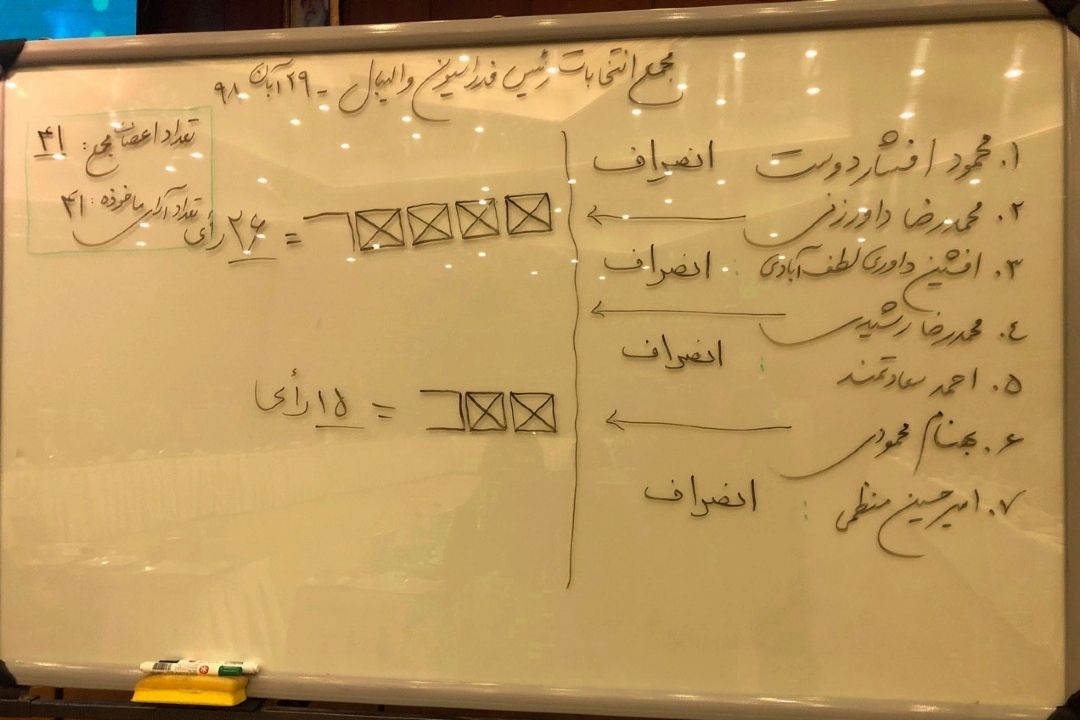 مجمع انتخابات رئیس فدراسیون والیبال - ۲۹ آبان ۹۸
تعداد اعضاء مجمع: ۴۱
تعداد آرای ماخوذه: ۴۱
۱. محمود افشاردوست انصراف
۲. محمدرضا داورزنی ← = ۲۶ رأی
۳. افشین داوری لطف آبادی : انصراف
۴. محمدرضا رشیدی ←
۵. احمد سعادتمند : انصراف
۶. بهنام محمودی ← = ۱۵ رأی
۷. امیرحسین منظمی : انصراف